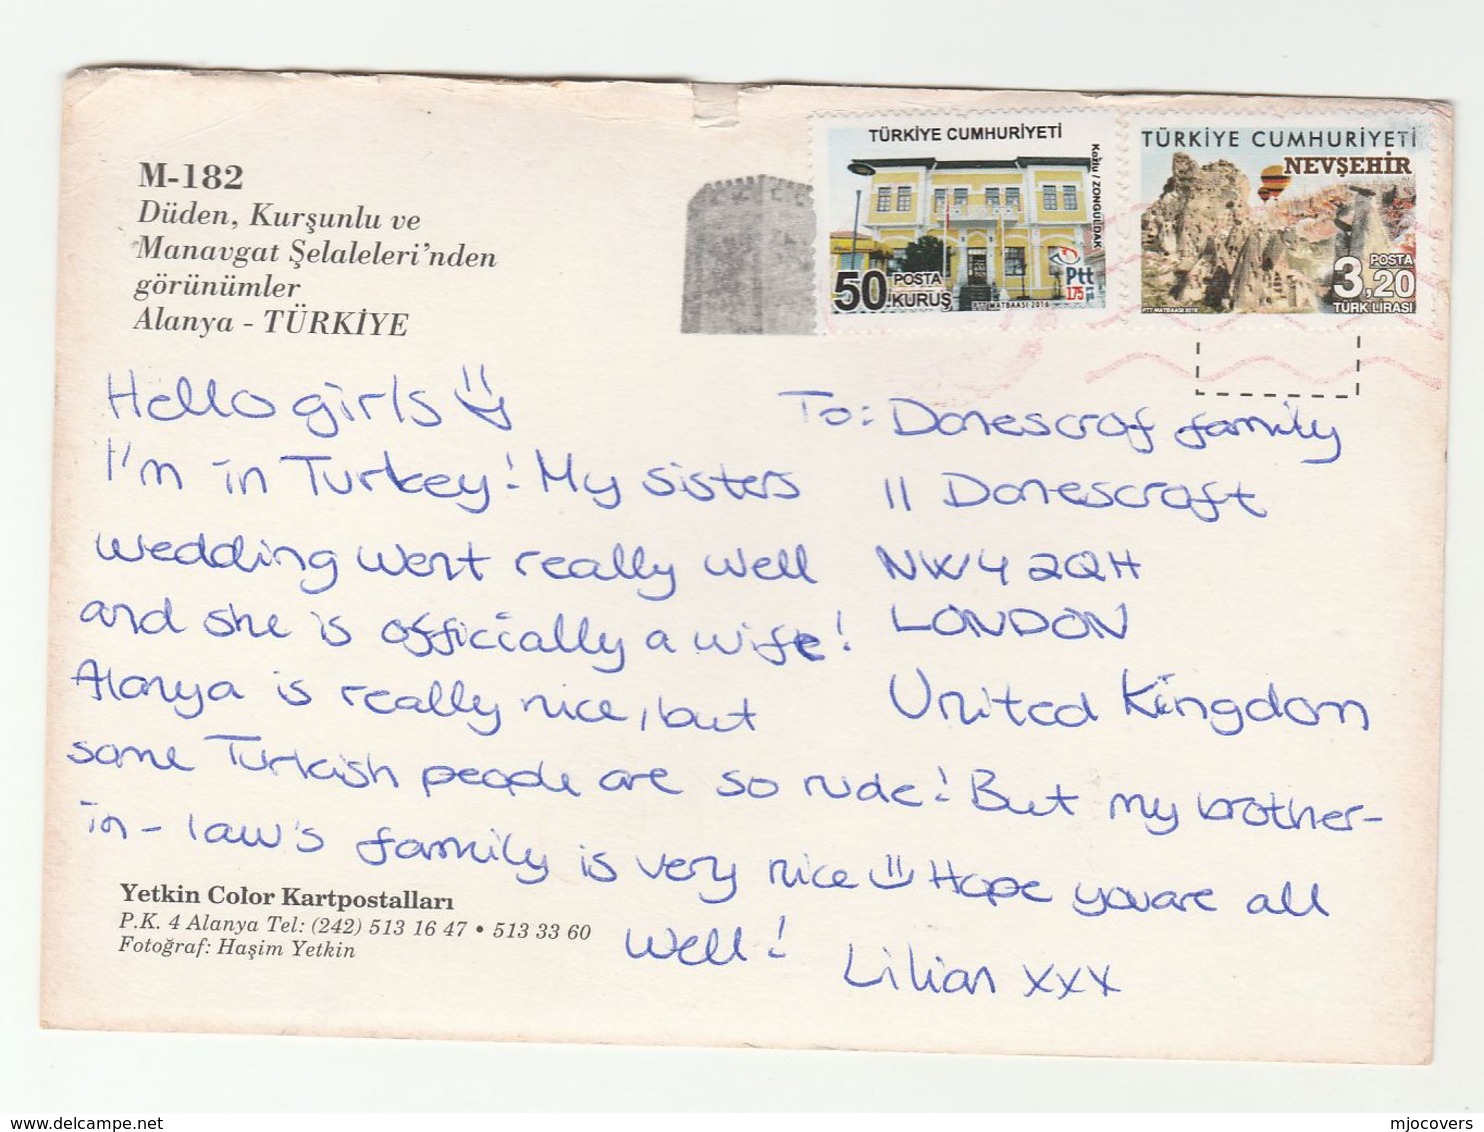 M-182
Düden, Kurşunlu ve
Manavgat Şelaleleri'nden
görünümler
Alanya - TÜRKİYE
TÜRKİYE CUMHURİYETİ
Kozlu / ZONGULDAK
50 POSTA
KURUŞ
Ptt
175
PTT MATBAASI 2016
TÜRKİYE CUMHURİYETİ
NEVŞEHİR
POSTA
3,20
TÜRK LİRASI
PTT MATBAASI 2016
Hello girls
I'm in Turkey! My sisters
wedding went really well
and she is officially a wife!
Alanya is really nice, but
some Turkish people are so rude! But my brother-
in-law's family is very nice Hope you are all
well!
Lilian xxx
To: Donescrof family
11 Donescroft
NW4 2QH
LONDON
United Kingdom
Yetkin Color Kartpostalları
P.K. 4 Alanya Tel: (242) 513 16 47 • 513 33 60
Fotoğraf: Haşim Yetkin
mjocovers